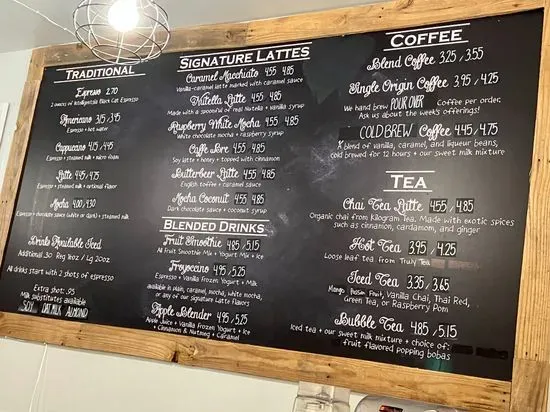 TRADITIONAL
Espresso 2.70
2 ounces of Intelligentsia Black Cat Espresso
Americano 3.15/3.45
Espresso + hot water
Cappuccino 4.15/4.45
Espresso + steamed milk + micro foam
Latte 4.45/4.75
Espresso + steamed milk + optional flavor
Mocha 4.00/4.30
Espresso + chocolate sauce (white or dark) + steamed milk
Drinks Available Iced
Additional .30 Reg 16oz / Lg 20oz
All drinks start with 2 shots of espresso
Extra shot: .95
Milk substitutes available
SOY OAT MILK ALMOND
SIGNATURE LATTES
Caramel Macchiato 4.55 4.85
Vanilla-caramel latte marked with caramel sauce
Nutella Latte 4.55 4.85
Made with a spoonful of real Nutella + vanilla syrup
Raspberry White Mocha 4.55 4.85
White chocolate mocha + raspberry syrup
Caffe Lore 4.55 4.85
Soy latte + honey + topped with cinnamon
Butterbeer Latte 4.55 4.85
English toffee + caramel sauce
Mocha Coconut 4.55 4.85
Dark chocolate sauce + coconut syrup
BLENDED DRINKS
Fruit Smoothie 4.85/5.15
All Fruit Smoothie Mix + Yogurt Mix + Ice
Froyoccino 4.95/5.25
Espresso + Vanilla Frozen Yogurt + Milk
available in plain, caramel, mocha, white mocha,
or any of our signature Latte Flavors
Apple Blender 4.95/5.25
Apple Juice + Vanilla Frozen Yogurt + Ice
+ Cinnamon & Nutmeg + Caramel
COFFEE
Blend Coffee 3.25 / 3.55
Single Origin Coffee 3.95 / 4.25
We hand brew POUR OVER Coffee per order.
Ask us about the week's offerings!
COLD BREW Coffee 4.45/4.75
A blend of vanilla, caramel, and liqueur beans,
cold brewed for 12 hours + our sweet milk mixture
TEA
Chai Tea Latte 4.55 / 4.85
Organic chai from Kilogram Tea. Made with exotic spices
such as cinnamon, cardamom, and ginger
Hot Tea 3.95 / 4.25
Loose leaf tea from Truly Tea
Iced Tea 3.35 / 3.65
Mango Passion Fruit, Vanilla Chai, Thai Red,
Green Tea, or Raspberry Pom
Bubble Tea 4.85 / 5.15
Iced tea + our sweet milk mixture + choice of:
fruit flavored popping bobas